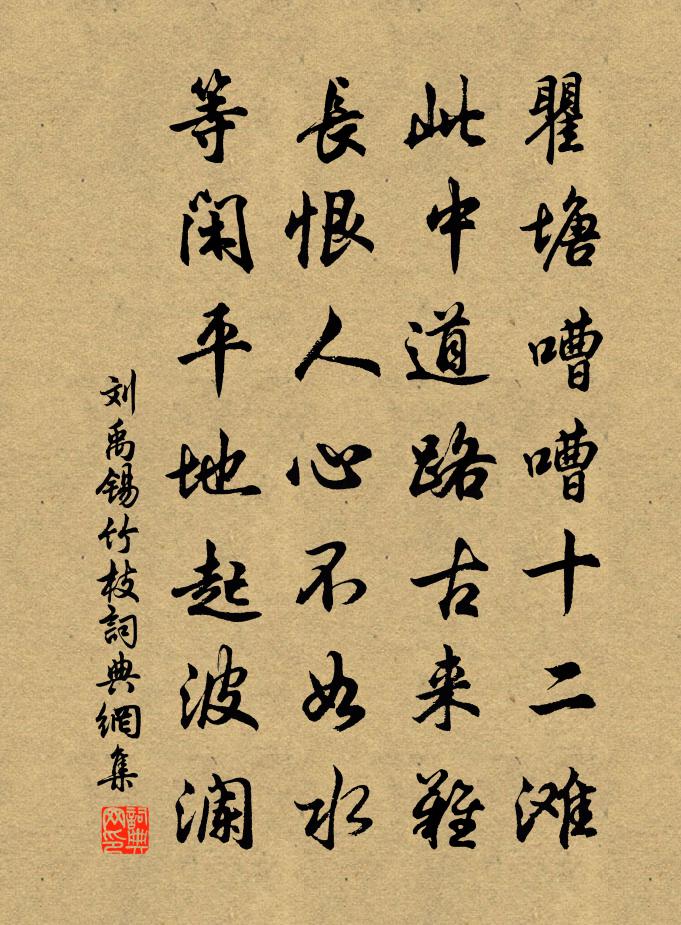 瞿塘嘈嘈十二滩
此中道路古来難
長恨人心不如水
等闲平地起波澜
刘禹锡竹枝詞典網集
詞典网印